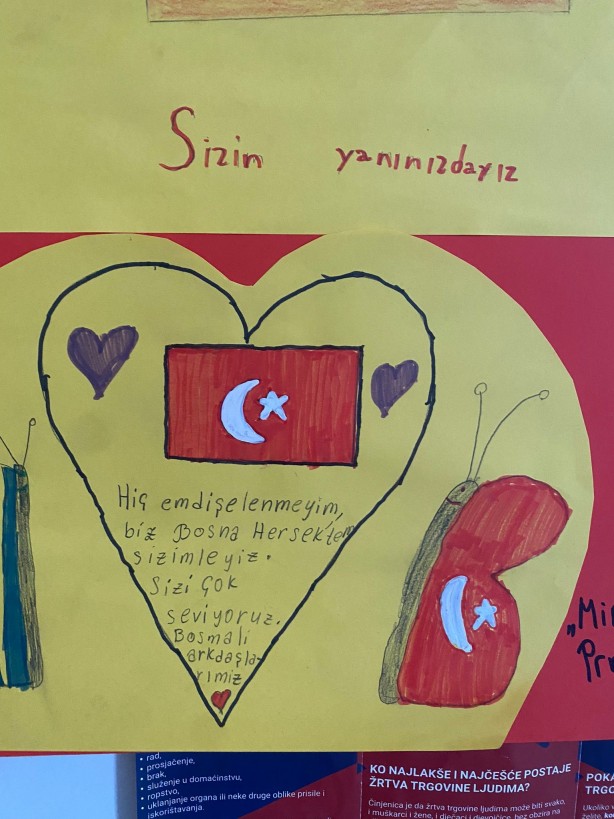 Sizin yanınızdayız
Hiç emdişelenmeyim,
biz Bosna Hersek'tem
sizimleyiz.
Sizi çok
seviyoruz.
Bosmali
arkdaşla-
rımız
"Mir
Pr
• rad,
• prosjačenje,
• brak,
• služenje u domaćinstvu,
• ropstvo,
• uklanjanje organa ili neke druge oblike prisile i
iskorištavanja.
KO NAJLAKŠE I NAJČEŠĆE POSTAJE
ŽRTVA TRGOVINE LJUDIMA?
Činjenica je da žrtva trgovine ljudima može biti svako,
i muškarci i žene, i dječaci i djevojčice, bez obzira na
POKA
TRGO
Ukoliko v